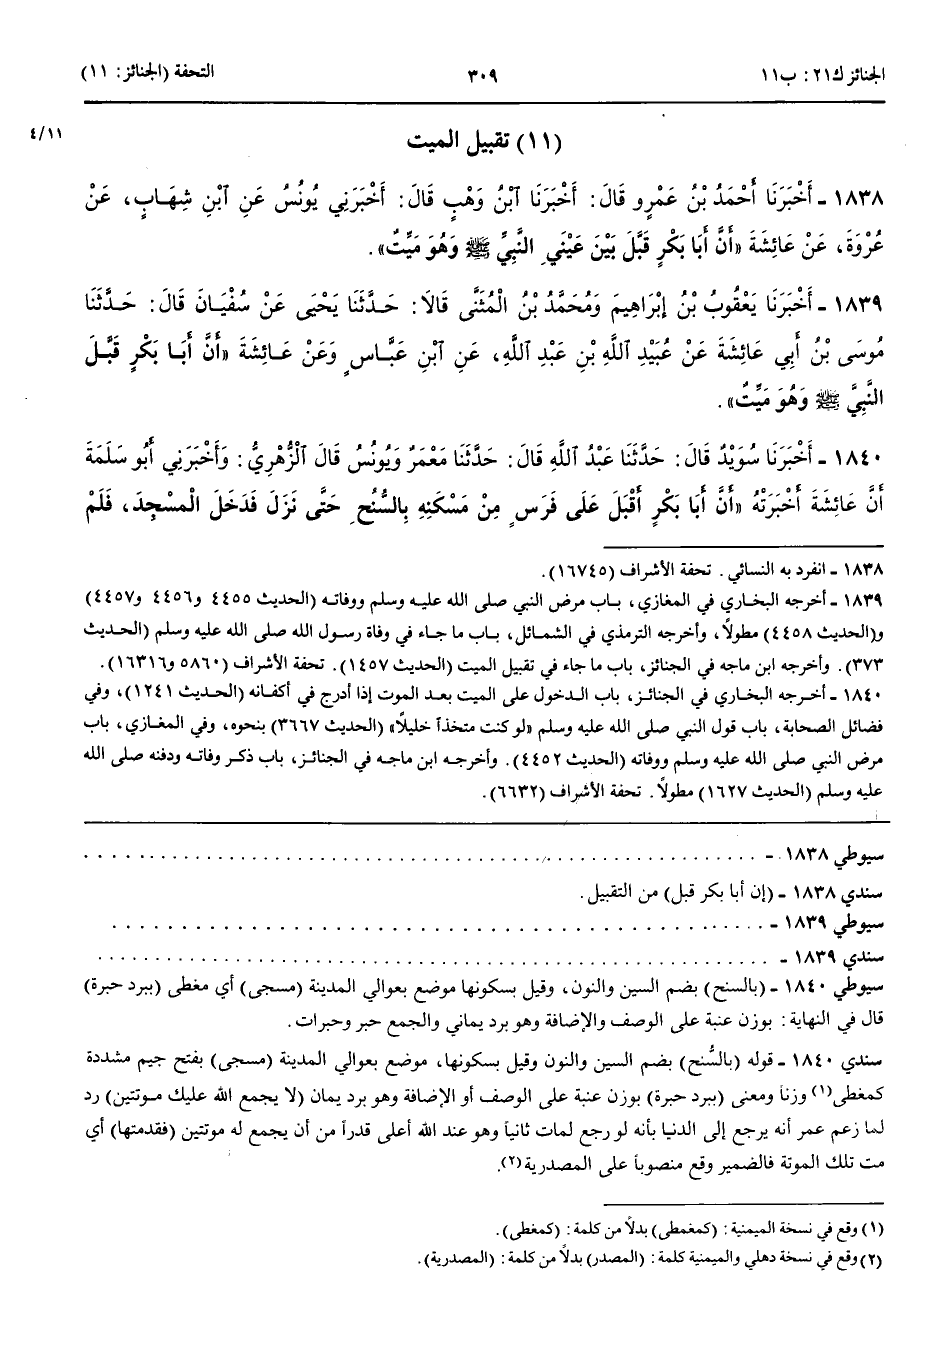 الجنائز ك٢١: ب١١
٣٠٩
التحفة (الجنائز: ١١)
٤/١١
(١١) تقبيل الميت
١٨٣٨ ـ أَخْبَرَنَا أَحْمَدُ بْنُ عَمْرٍو قَالَ: أَخْبَرَنَا ٱبْنُ وَهْبٍ قَالَ: أَخْبَرَنِي يُونُسُ عَنِ ٱبْنِ شِهَابٍ، عَنْ
عُرْوَةَ، عَنْ عَائِشَةَ «أَنَّ أَبَا بَكْرٍ قَبَّلَ بَيْنَ عَيْنَيِ النَّبِيِّ ﷺ وَهُوَ مَيِّتٌ».
١٨٣٩ ـ أَخْبَرَنَا يَعْقُوبُ بْنُ إِبْرَاهِيمَ وَمُحَمَّدُ بْنُ الْمُثَنَّى قَالَا: حَدَّثَنَا يَحْيَى عَنْ سُفْيَانَ قَالَ: حَدَّثَنَا
مُوسَى بْنُ أَبِي عَائِشَةَ عَنْ عُبَيْدِ ٱللَّهِ بْنِ عَبْدِ ٱللَّهِ، عَنِ ٱبْنِ عَبَّاسٍ وَعَنْ عَائِشَةَ «أَنَّ أَبَا بَكْرٍ قَبَّلَ
النَّبِيَّ ﷺ وَهُوَ مَيِّتٌ».
١٨٤٠ ـ أَخْبَرَنَا سُوَيْدٌ قَالَ: حَدَّثَنَا عَبْدُ ٱللَّهِ قَالَ: حَدَّثَنَا مَعْمَرٌ وَيُونُسُ قَالَ ٱلْزُهْرِيُّ: وَأَخْبَرَنِي أَبُو سَلَمَةَ
أَنَّ عَائِشَةَ أَخْبَرَتْهُ «أَنَّ أَبَا بَكْرٍ أَقْبَلَ عَلَى فَرَسٍ مِنْ مَسْكَنِهِ بِالسُّنُحِ حَتَّى نَزَلَ فَدَخَلَ الْمَسْجِدَ، فَلَمْ
١٨٣٨ ـ انفرد به النسائي. تحفة الأشراف (١٦٧٤٥).
١٨٣٩ ـ أخرجه البخاري في المغازي، باب مرض النبي صلى الله عليه وسلم ووفاته (الحديث ٤٤٥٥ و٤٤٥٦ و٤٤٥٧)
و(الحديث ٤٤٥٨) مطولًا، وأخرجه الترمذي في الشمائل، باب ما جاء في وفاة رسول الله صلى الله عليه وسلم (الحديث
٣٧٣). وأخرجه ابن ماجه في الجنائز، باب ما جاء في تقبيل الميت (الحديث ١٤٥٧). تحفة الأشراف (٥٨٦٠ و١٦٣١٦).
١٨٤٠ ـ أخرجه البخاري في الجنائز، باب الدخول على الميت بعد الموت إذا أدرج في أكفانه (الحديث ١٢٤١)، وفي
فضائل الصحابة، باب قول النبي صلى الله عليه وسلم «لو كنت متخذاً خليلًا» (الحديث ٣٦٦٧) بنحوه، وفي المغازي، باب
مرض النبي صلى الله عليه وسلم ووفاته (الحديث ٤٤٥٢). وأخرجه ابن ماجه في الجنائز، باب ذكر وفاته ودفنه صلى الله
عليه وسلم (الحديث ١٦٢٧) مطولًا. تحفة الأشراف (٦٦٣٢).
سيوطي ١٨٣٨ ـ . . . . . . . . . . . . . . . . . . . .
سندي ١٨٣٨ ـ (إن أبا بكر قبل) من التقبيل.
سيوطي ١٨٣٩ ـ . . . . . . . . . . . . . . . . . . . .
سندي ١٨٣٩ ـ . . . . . . . . . . . . . . . . . . . .
سيوطي ١٨٤٠ ـ (بالسنح) بضم السين والنون، وقيل بسكونها موضع بعوالي المدينة (مسجى) أي مغطى (ببرد حبرة)
قال في النهاية: بوزن عنبة على الوصف والإضافة وهو برد يماني والجمع حبر وحبرات.
سندي ١٨٤٠ ـ قوله (بالسُّنح) بضم السين والنون وقيل بسكونها، موضع بعوالي المدينة (مسجى) بفتح جيم مشددة
كمغطى(١) وزناً ومعنى (ببرد حبرة) بوزن عنبة على الوصف أو الإضافة وهو برد يمان (لا يجمع الله عليك موتتين) رد
لما زعم عمر أنه يرجع إلى الدنيا بأنه لو رجع لمات ثانياً وهو عند الله أعلى قدراً من أن يجمع له موتتين (فقدمتها) أي
مت تلك الموتة فالضمير وقع منصوباً على المصدرية(٢).
(١) وقع في نسخة الميمنية: (كمغمطى) بدلًا من كلمة: (كمغطى).
(٢) وقع في نسخة دهلي والميمنية كلمة: (المصدر) بدلًا من كلمة: (المصدرية).